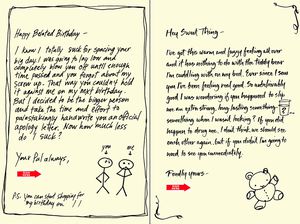 Happy Belated Birthday -
I know I totally suck for spacing your
big day. I was going to lay low and
completely blow you off until enough
time passed and you forgot about my
screw up. That way you couldn't hold
it against me on my next birthday.
But I decided to be the bigger person
and take the time and effort to
painstakingly handwrite you an official
apology letter. Now how much less
do I suck?
Your Pal always,
you
me
P.S. You can start shopping for
my birthday on
Hey Sweet Thing -
I've got this warm and fuzzy feeling all over
and it has nothing to do with the Teddy bear
I'm cuddling with in my bed. Ever since I saw
you I've been feeling real good. So unbelievably
good I was wondering if you happened to slip
me an extra strong, long lasting something
something when I wasn't looking? If you did
happen to drug me, I don't think we should see
each other again, but if you didn't I'm going to
need to see you immediately.
Fondly yours -